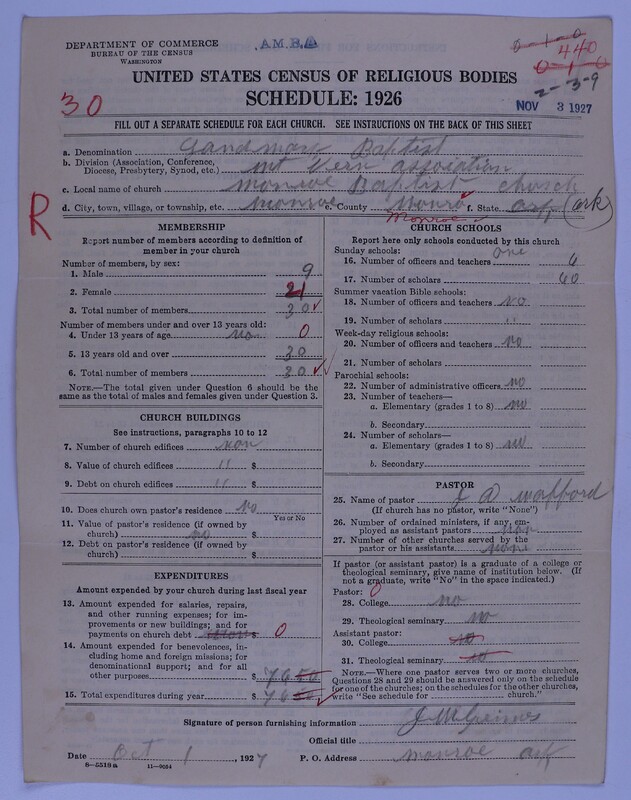 DEPARTMENT OF COMMERCE
BUREAU OF THE CENSUS
WASHINGTON
A.M.B.A
0-1-0
440
0-1-0
2-3-9
NOV 3 1927
30
UNITED STATES CENSUS OF RELIGIOUS BODIES
SCHEDULE: 1926
FILL OUT A SEPARATE SCHEDULE FOR EACH CHURCH. SEE INSTRUCTIONS ON THE BACK OF THIS SHEET
a. Denomination Landmark Baptist
b. Division (Association, Conference, Diocese, Presbytery, Synod, etc.) mt Vern association
c. Local name of church monroe Baptist church
d. City, town, village, or township, etc. monroe e. County Monro f. State ark (ark)
Monroe
R
MEMBERSHIP
Report number of members according to definition of member in your church
Number of members, by sex:
1. Male 9
2. Female 21
3. Total number of members 30 ✓
Number of members under and over 13 years old:
4. Under 13 years of age non 0
5. 13 years old and over 30
6. Total number of members 30 ✓✓
NOTE.—The total given under Question 6 should be the same as the total of males and females given under Question 3.
CHURCH BUILDINGS
See instructions, paragraphs 10 to 12
7. Number of church edifices non
8. Value of church edifices " $
9. Debt on church edifices " $
10. Does church own pastor's residence no
Yes or No
11. Value of pastor's residence (if owned by church) no $
12. Debt on pastor's residence (if owned by church) $
EXPENDITURES
Amount expended by your church during last fiscal year
13. Amount expended for salaries, repairs, and other running expenses; for improvements or new buildings; and for payments on church debt $ 0
14. Amount expended for benevolences, including home and foreign missions; for denominational support; and for all other purposes $ 76 50
15. Total expenditures during year $ 76 50 ✓
CHURCH SCHOOLS
Report here only schools conducted by this church
Sunday schools: one
16. Number of officers and teachers 6
17. Number of scholars 40
Summer vacation Bible schools:
18. Number of officers and teachers no
19. Number of scholars "
Week-day religious schools:
20. Number of officers and teachers no
21. Number of scholars
Parochial schools:
22. Number of administrative officers no
23. Number of teachers—
a. Elementary (grades 1 to 8) no
b. Secondary
24. Number of scholars—
a. Elementary (grades 1 to 8) no
b. Secondary
PASTOR
25. Name of pastor J A wafford
(If church has no pastor, write "None")
26. Number of ordained ministers, if any, employed as assistant pastors non
27. Number of other churches served by the pastor or his assistants none
If pastor (or assistant pastor) is a graduate of a college or theological seminary, give name of institution below. (If not a graduate, write "No" in the space indicated.)
Pastor: 0
28. College no
29. Theological seminary no
Assistant pastor:
30. College no
31. Theological seminary no
NOTE.—Where one pastor serves two or more churches, Questions 28 and 29 should be answered only on the schedule for one of the churches; on the schedules for the other churches, write "See schedule for church."
Signature of person furnishing information J. M. Grimes
Official title
Date Oct 1, 1927 P. O. Address monroe ark
8-5518a 11-9664